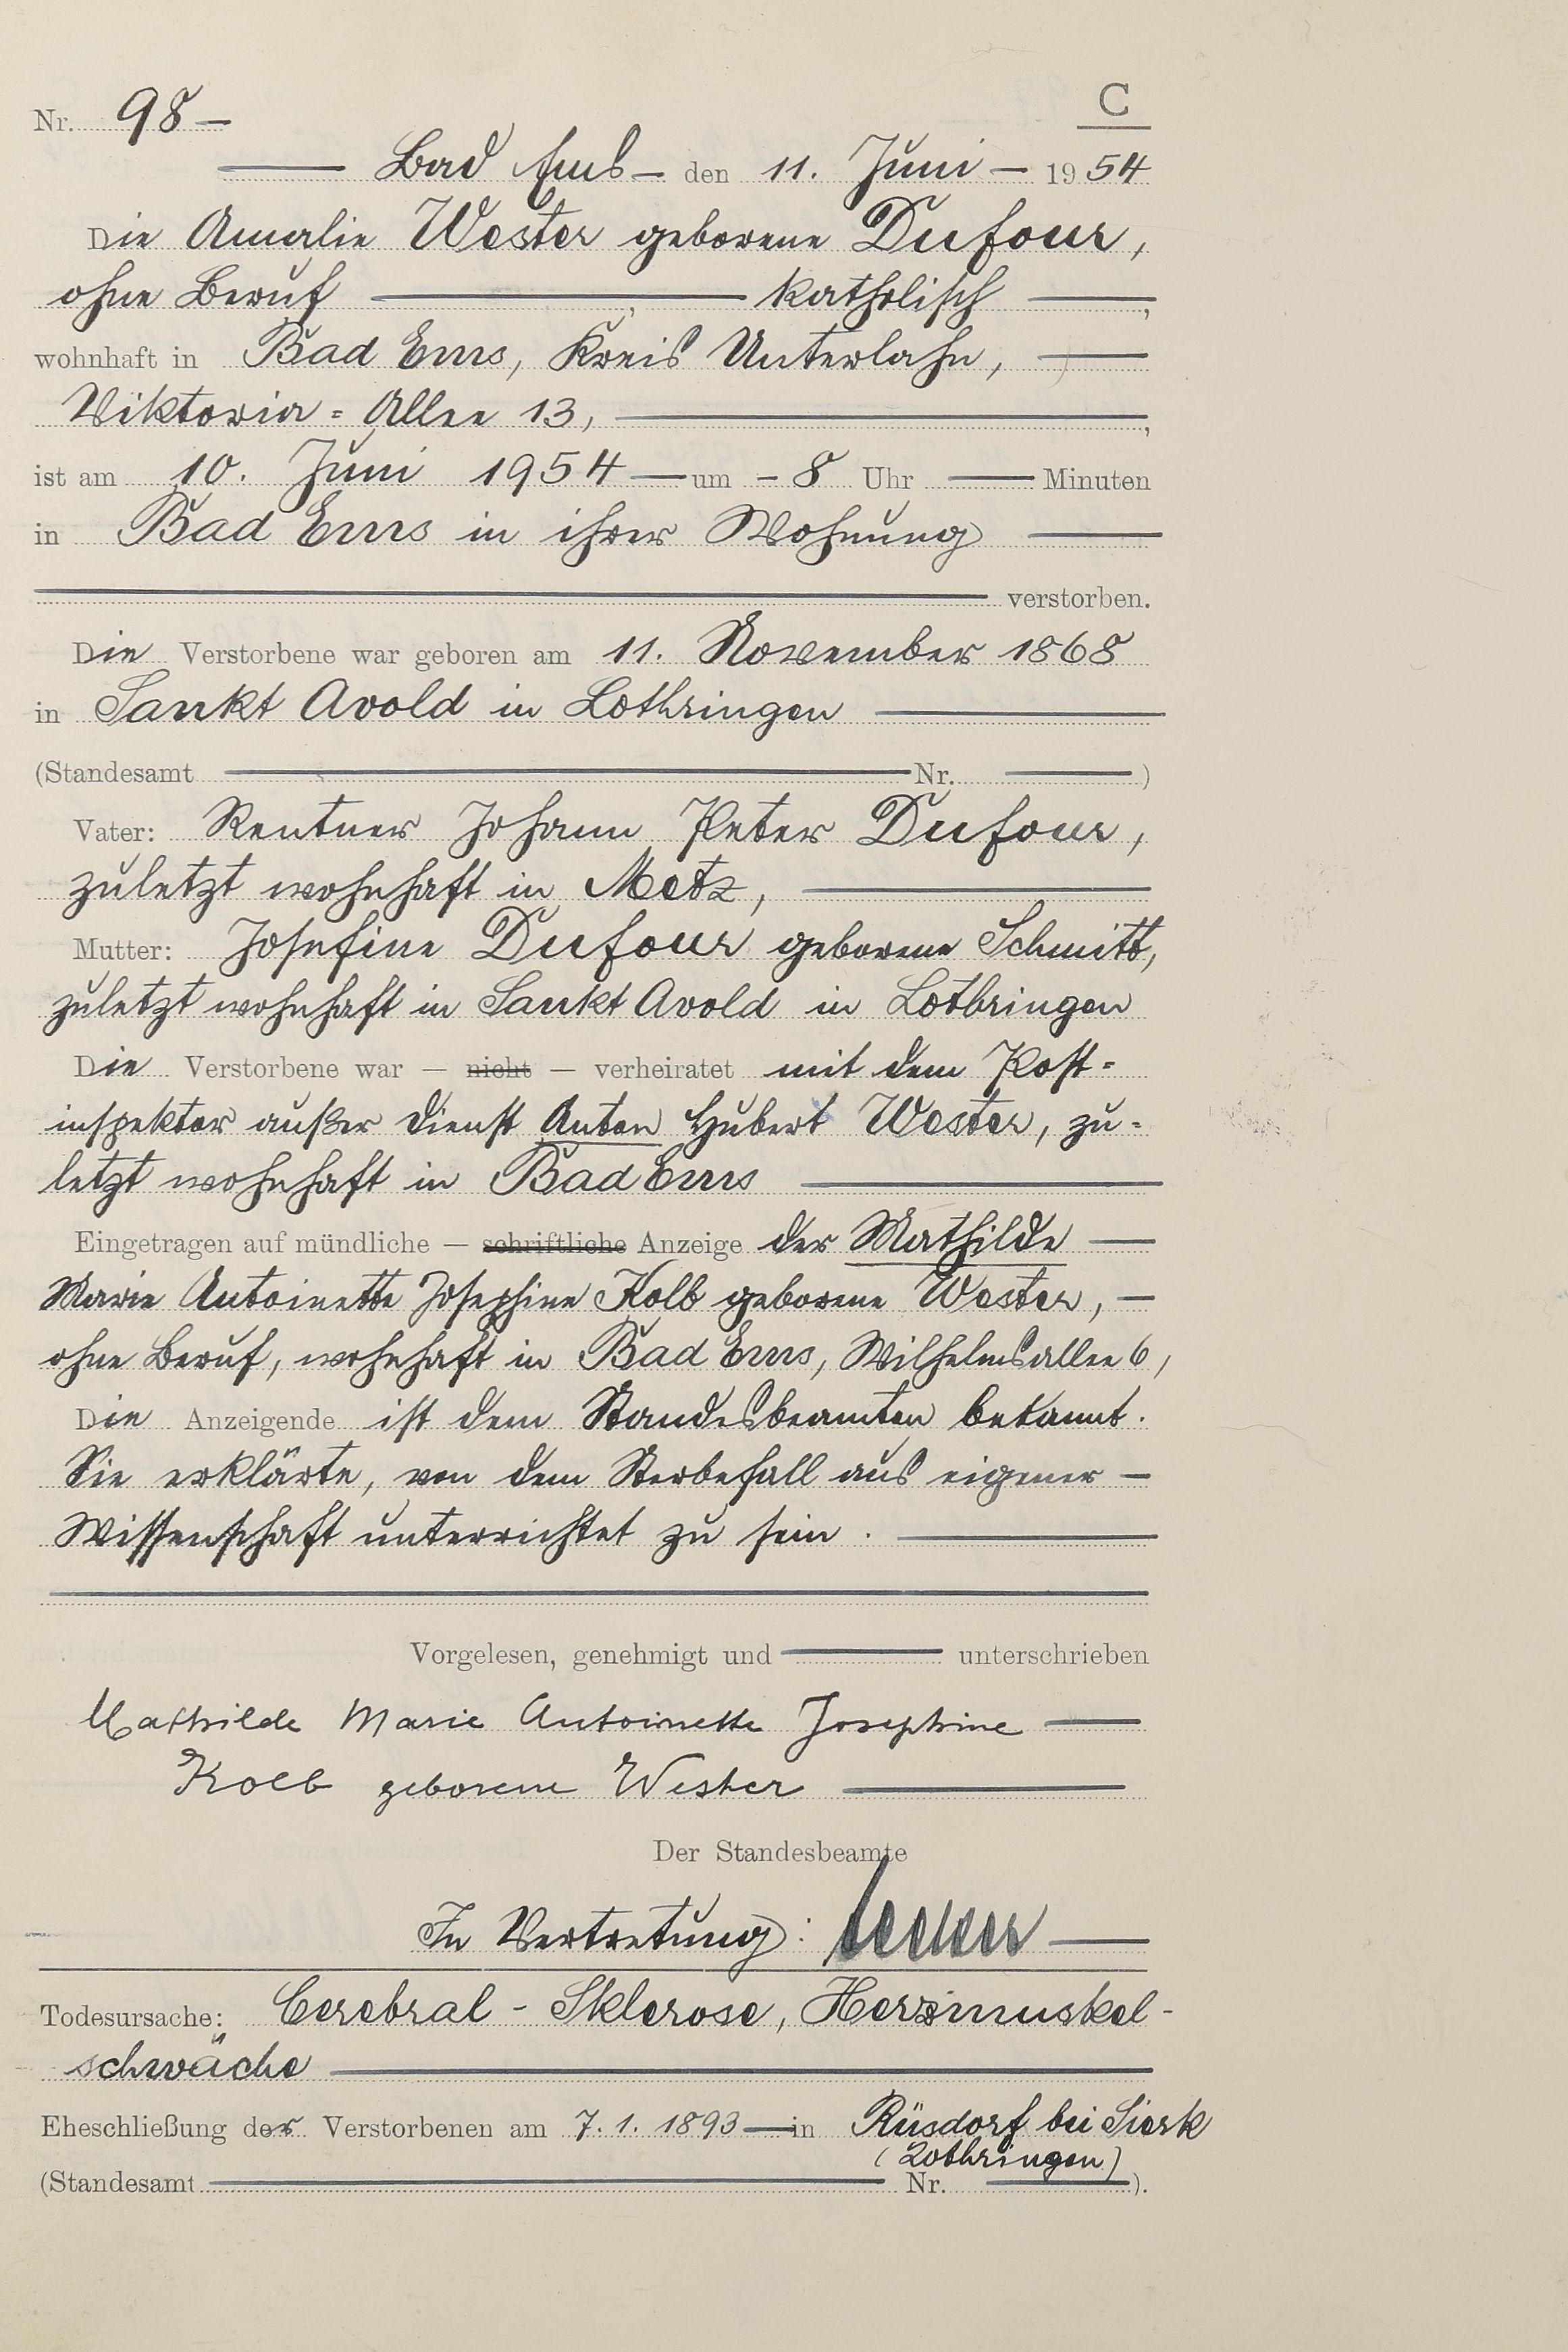 C
Nr. 98 —
— Bad Ems — den 11. Juni — 1954
Die Amalie Wester geborene Dufour,
ohne Beruf — , katholisch — ,
wohnhaft in Bad Ems, Kreis Unterlahn, —
Viktoria = Allee 13, — ,
ist am 10. Juni 1954 — um — 8 Uhr — Minuten
in Bad Ems in ihrer Wohnung —
— verstorben.
Die Verstorbene war geboren am 11. November 1868
in Sankt Avold in Lothringen —
(Standesamt — Nr. — )
Vater: Rentner Johann Peter Dufour,
zuletzt wohnhaft in Metz, —
Mutter: Josefine Dufour geborene Schmitt,
zuletzt wohnhaft in Sankt Avold in Lothringen
Die Verstorbene war — nicht — verheiratet mit dem Post=
inspektor außer Dienst Anton Hubert Wester, zu=
letzt wohnhaft in Bad Ems —
Eingetragen auf mündliche — schriftliche Anzeige der Mathilde —
Marie Antoinette Josephine Kolb geborene Wester, —
ohne Beruf, wohnhaft in Bad Ems, Wilhelmsallee 6,
Die Anzeigende ist dem Standesbeamten bekannt.
Sie erklärte, von dem Sterbefall aus eigener —
Wissenschaft unterrichtet zu sein. —
Vorgelesen, genehmigt und — unterschrieben
Mathilde Marie Antoinette Josephine —
Kolb geborene Wester —
Der Standesbeamte
In Vertretung: —
Todesursache: Cerebral - Sklerose, Herzmuskel-
schwäche —
Eheschließung der Verstorbenen am 7. 1. 1893 — in Rüsdorf bei Sierk
(Lothringen)
(Standesamt — Nr. — ).